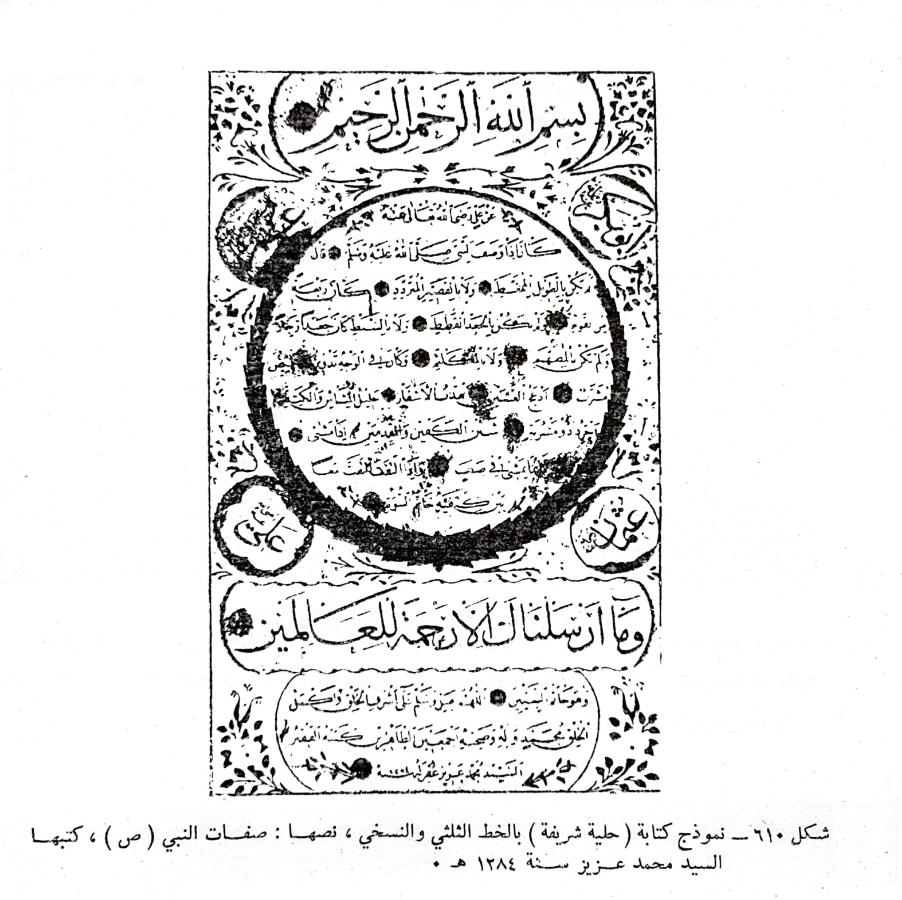 بسم الله الرحمن الرحيم
ابوبكر
عمر
عن علي رضي الله تعالى عنه
كان اذا وصف النبي صلى الله عليه وسلم قال
لم يكن بالطويل الممغط ولا بالقصير المتردد كان ربعة
من القوم ولم يكن بالجعد القطط ولا بالسبط كان جعدا رجلا
ولم يكن بالمطهم ولا بالمكلثم وكان في الوجه تدوير ابيض
مشرب ادعج العينين اهدب الاشفار جليل المشاش والكتد
اجرد ذو مسربة شثن الكفين والقدمين اذا مشى
في صبب واذا التفت التفت معا
بين كتفيه خاتم النبوة
عثمان
علي
وما ارسلناك الا رحمة للعالمين
وهو خاتم النبيين اللهم صل وسلم على اشرف الخلق واكمل
الخلق محمد وآله وصحبه اجمعين الطاهرين كتبه الفقير
السيد محمد عزيز غفر له سنة
شكل ٦١٠ ــ نموذج كتابة ( حلية شريفة ) بالخط الثلثي والنسخي ، نصها : صفات النبي ( ص ) ، كتبها
السيد محمد عزيز سنة ١٢٨٤ هـ .